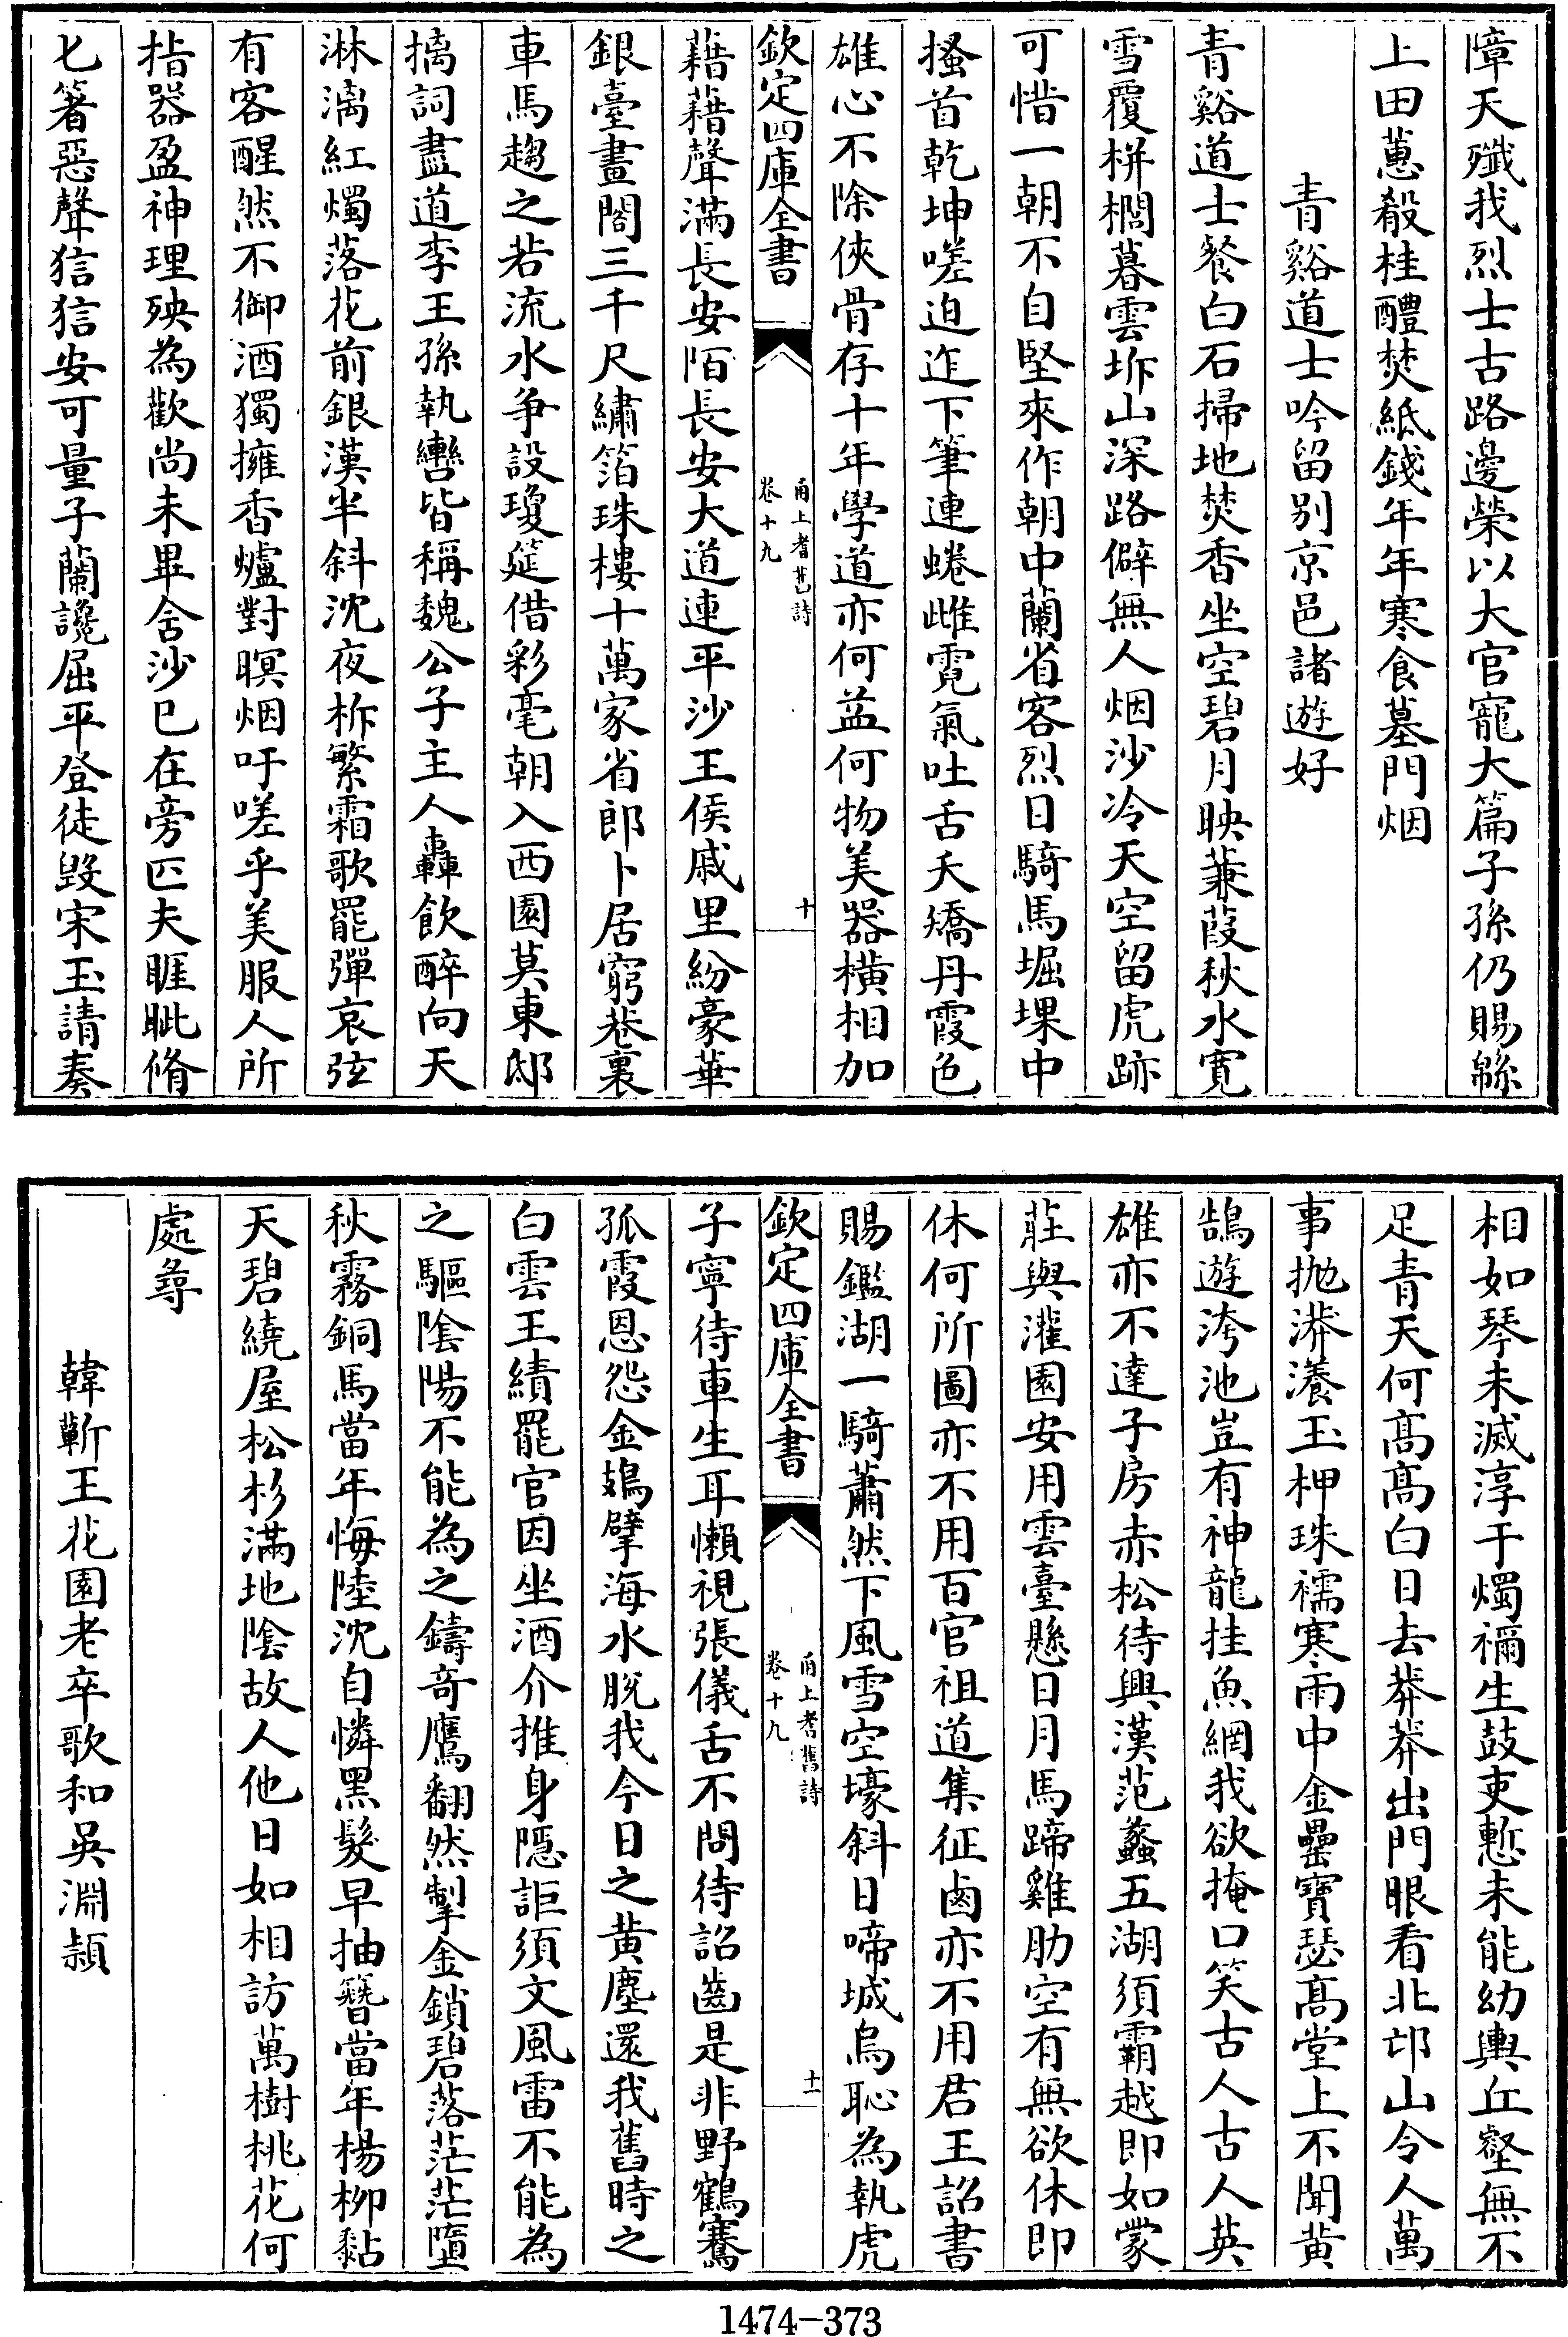 障天殲我烈士古路邊榮以大官寵大篇子孫仍賜緜
上田蕙殽桂醴焚紙錢年年寒食墓門烟
青谿道士吟留别京邑諸遊好
青谿道士餐白石掃地焚香坐空碧月映蒹葭秋水寛
雪覆栟櫚暮雲坼山深路僻無人烟沙冷天空留虎跡
可惜一朝不自堅來作朝中蘭省客烈日騎馬堀堁中
搔首乾坤嗟迫迮下筆連蜷雌霓氣吐舌夭矯丹霞色
雄心不除俠骨存十年學道亦何益何物美器橫相加
欽定四庫全書
甬上耆舊詩
卷十九
十
藉藉聲滿長安陌長安大道連平沙王侯戚里紛豪華
銀臺畫閣三千尺繡箔珠樓十萬家省郎卜居窮巷裏
車馬趨之若流水争設瓊筵借彩毫朝入西園莫東邸
摛詞盡道李王孫執轡皆稱魏公子主人轟飲醉向天
淋漓紅燭落花前銀漢半斜沈夜柝繁霜歌罷彈哀弦
有客醒然不御酒獨擁香爐對暝烟吁嗟乎美服人所
指器盈神理殃為歡尚未畢含沙已在旁匹夫睚眦脩
匕箸惡聲狺狺安可量子蘭讒屈平登徒毁宋玉請奏
相如琴未滅淳于燭禰生鼓吏慙未能幼輿丘壑無不
足青天何髙髙白日去莽莽出門眼看北邙山令人萬
事抛漭瀁玉柙珠襦寒雨中金罍寶瑟髙堂上不聞黄
鵠遊洿池豈有神龍挂魚網我欲掩口笑古人古人英
雄亦不達子房赤松待興漢范蠡五湖須霸越即如蒙
莊與灌園安用雲臺懸日月馬蹄雞肋空有無欲休即
休何所圖亦不用百官祖道集征鹵亦不用君王詔書
賜鑑湖一騎蕭然下風雪空壕斜日啼城烏恥為執虎
欽定四庫全書
甬上耆舊詩
卷十九
十一
子寧待車生耳懶視張儀舌不問待詔齒是非野鶴騫
孤霞恩怨金鳷擘海水脱我今日之黄塵還我舊時之
白雲王績罷官因坐酒介推身隱詎須文風雷不能為
之驅隂陽不能為之鑄奇鷹翻然掣金鎖碧落茫茫墮
秋霧銅馬當年悔陸沈自憐黑髮早抽簪當年楊柳黏
天碧繞屋松杉滿地隂故人他日如相訪萬樹桃花何
處尋
韓蘄王花園老卒歌和吳淵頴
1474-373